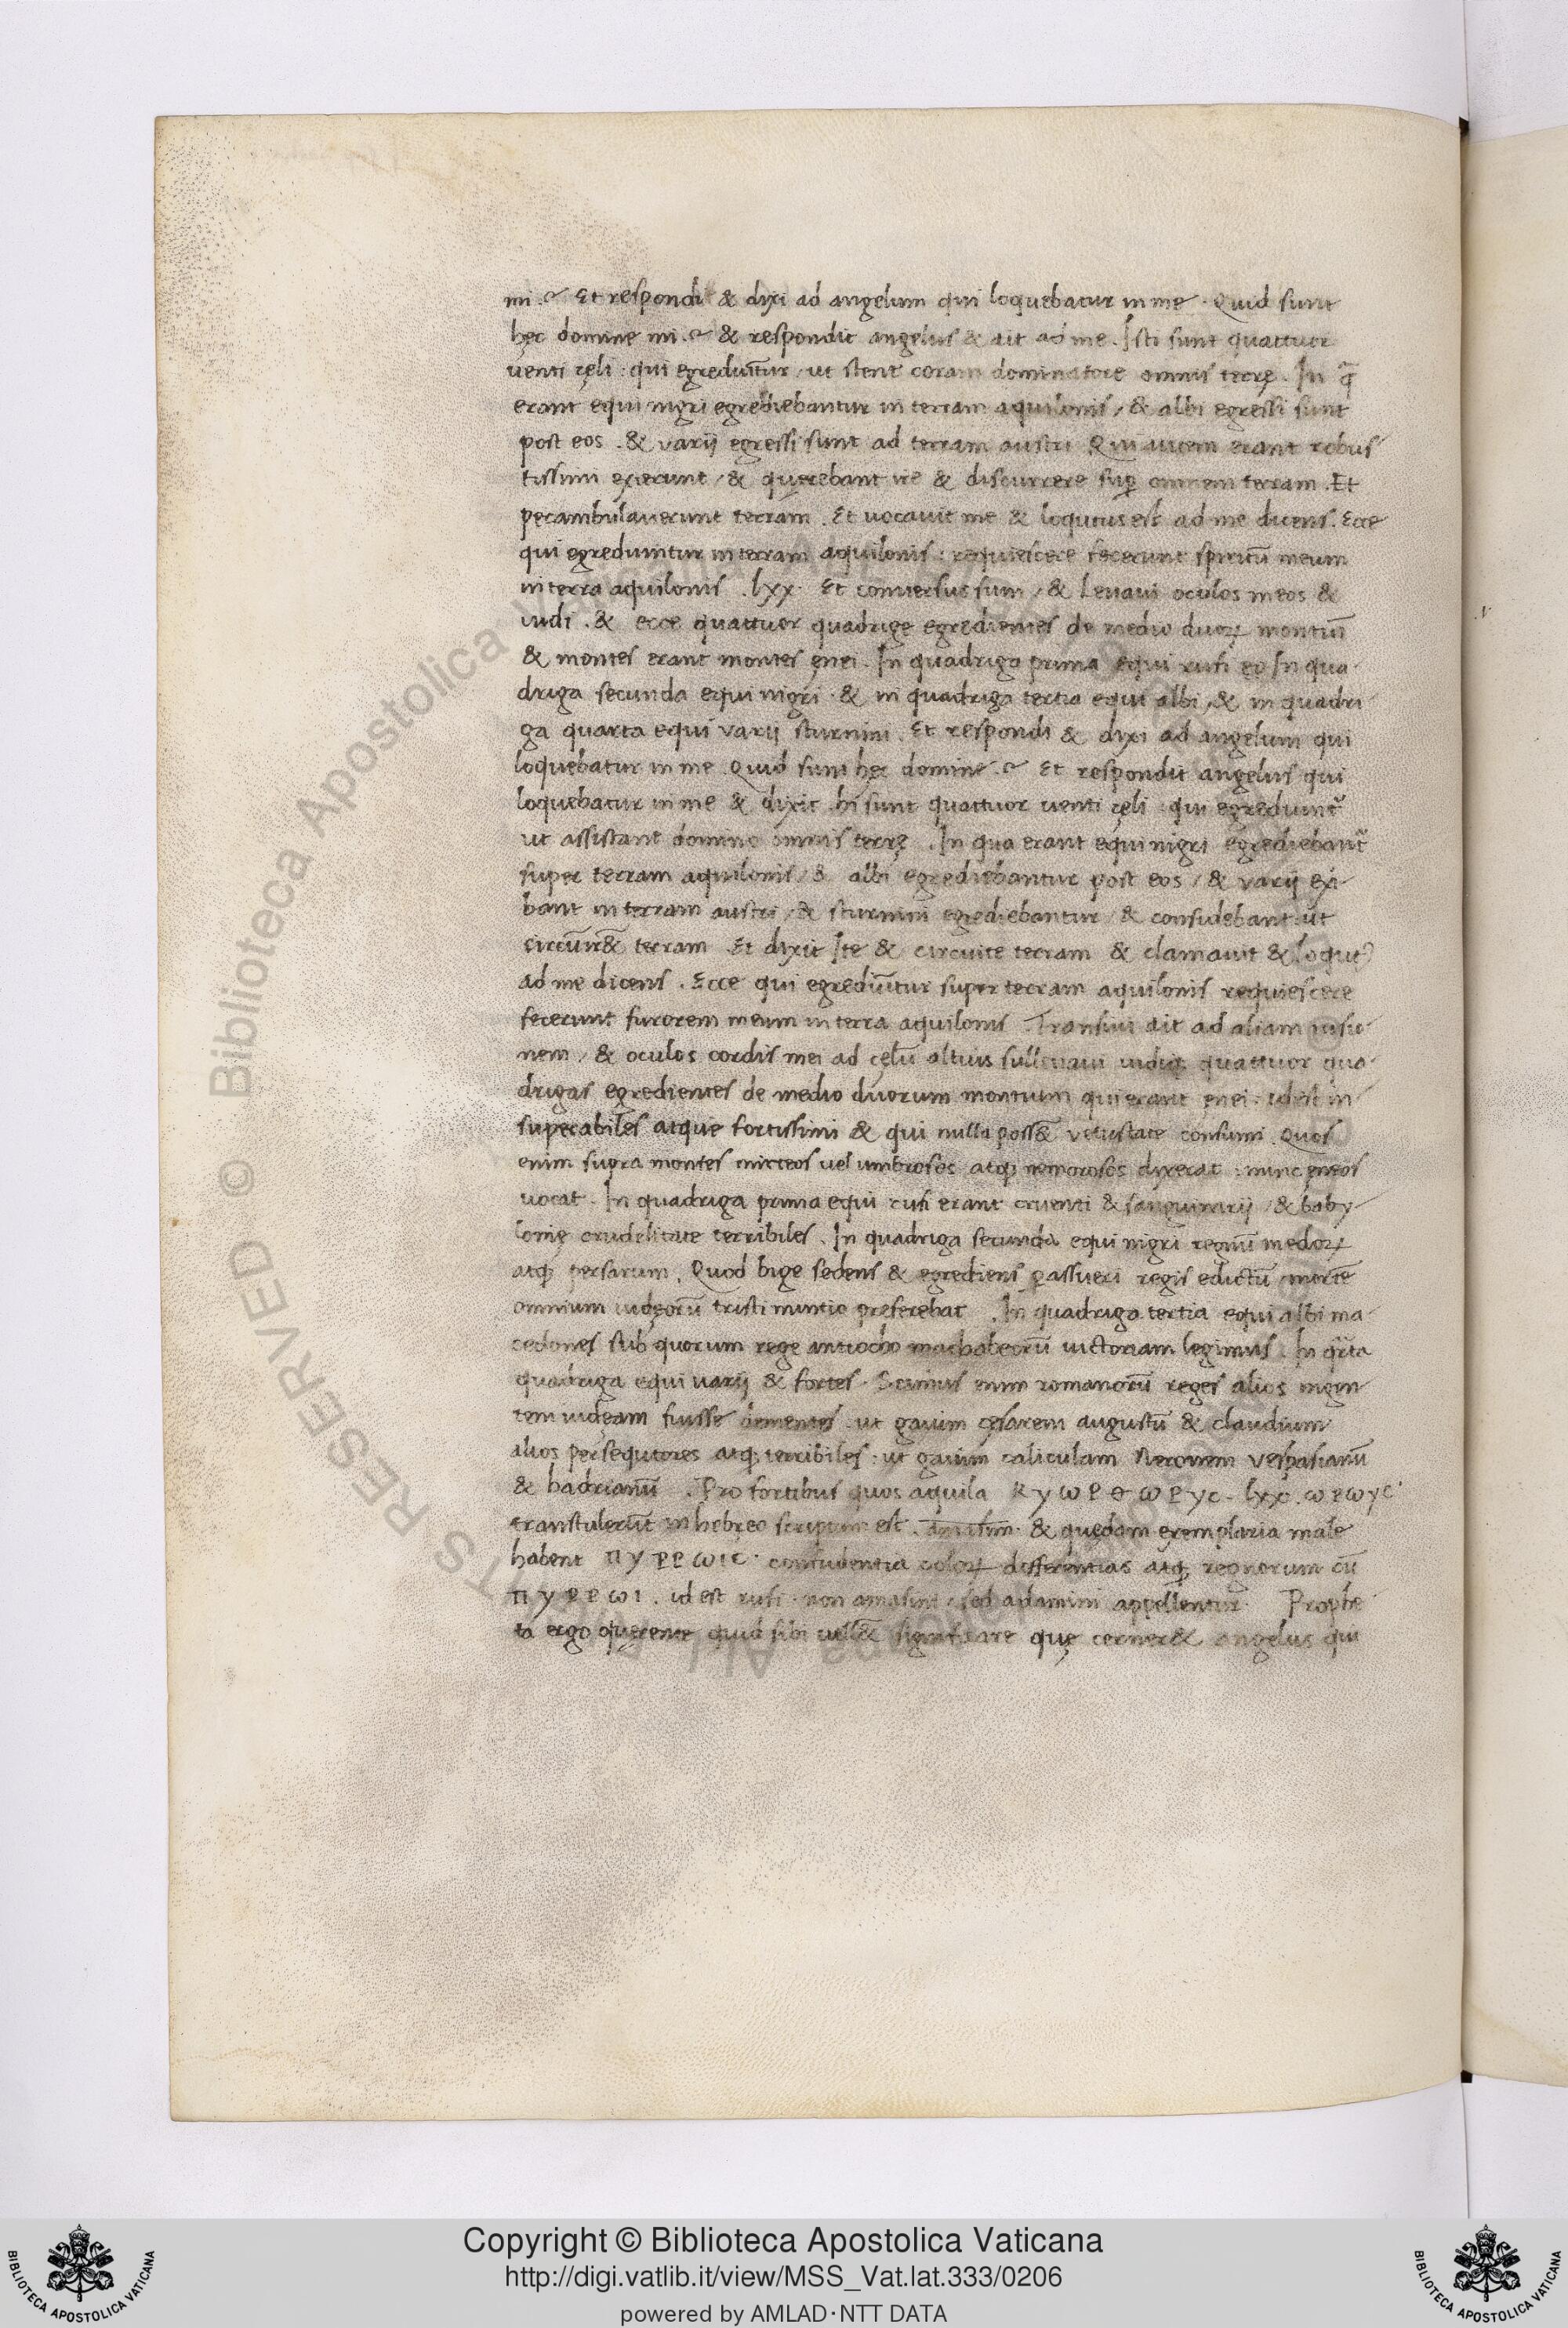 mi .~ Et respondi & dixi ad angelum qui loquebatur in me . Quid sunt
hęc domine mi .~ & respondit angelus & ait ad me . Isti sunt quattuor
uenti cęli : qui egrediūtur / ut stent coram dominatore omnis terrę . In q̄
erant equi nigri egrediebantur in terram aquilonis / & albi egressi sunt
post eos . & varij egressi sunt ad terram austri Qui autem erant robus
tissimi exierunt / & querebant ire & discurrere suꝑ omnem terram . Et
perambulauerunt terram . Et uocauit me & loqutus est ad me dicens . Ecce
qui egrediuntur in terram aquilonis : requiescere fecerunt spiritū meum
in terra aquilonis . lxx . Et conuersus sum / & Leuaui oculos meos &
uidi . & ecce quattuor quadrige egredientes de medio duoꝝ montiū
& montes erant montes ęnei . In quadriga prima equi rufi eo In qua-
driga secunda equi nigri . & in quadriga tertia equi albi , & in quadri
ga quarta equi varij sturnini . Et respondi & dixi ad angelum qui
loquebatur in me Quid sunt hęc domine .~ Et respondit angelus qui
loquebatur in me & dixit hi sunt quattuor uenti cęli : qui egrediunt᷑
ut assistant domino omnis terrę . In qua erant equi nigri egrediebant᷑
super terram aquilonis / & albi egrediebantur post eos / & varij exi-
bant in terram austri / & sturnini egrediebantur / & consulebant ut
circūir& terram Et dixit Ite & circuite terram & clamauit & loqut᷒
ad me dicens . Ecce qui egrediūtur super terram aquilonis requiescere
fecerunt furorem meum in terra aquilonis Transiui ait ad aliam uisio-
nem / & oculos cordis mei ad cęlū altius subleuaui uidiq; quattuor qua-
drigas egredientes de medio duorum montium qui erant ęnei . idest in-
superabiles atque fortissimi & qui nulla poss& vetustate consumi Quos
enim supra montes mirteos uel umbrosos atq; nemorosos dixerat : nunc ęneos
uocat . In quadriga prima equi rufi erant cruenti & sanguinarij / & baby-
lonię crudelitate terribiles . In quadriga secunda equi nigri regnū medoꝝ
atq; persarum . Quod bige sedens & egrediens ꝑ assueri regis edictū mortē
omnium iudęorū tristi nuntio preferebat . In quadriga tertia equi albi ma-
cedones sub quorum rege antiocho machabeorū uictoriam legimus . In q̄rta
quadriga equi varij & fortes . Scimus enim romanorū reges alios in gen
tem iudęam fuisse clementes ut gaium cęsarem augustū & claudium
alios persequtores atq; terribiles : ut gaium caliculam Neronem Vespasianū
& hadrianū . Pro fortibus quos aquila Κ Υ ω Ρ Θ ω Ρ Υ C . lxx . ω Ρ ω Υ C .
transtulerūt in hebreo scriptum est . amasim . & quędam exemplaria male
habent Π Υ Ρ Ρ ω Ι C . confudentia coloꝝ differentias atq; regnorum cū
Π Υ Ρ Ρ ω Ι . id est rufi . non amasim / sed adamini appellentur . Prophe
ta ergo querente quid sibi uell& significare quę cerner& angelus qui
Copyright © Biblioteca Apostolica Vaticana
http://digi.vatlib.it/view/MSS_Vat.lat.333/0206
powered by AMLAD·NTT DATA
BIBLIOTECA APOSTOLICA VATICANA
BIBLIOTECA APOSTOLICA VATICANA